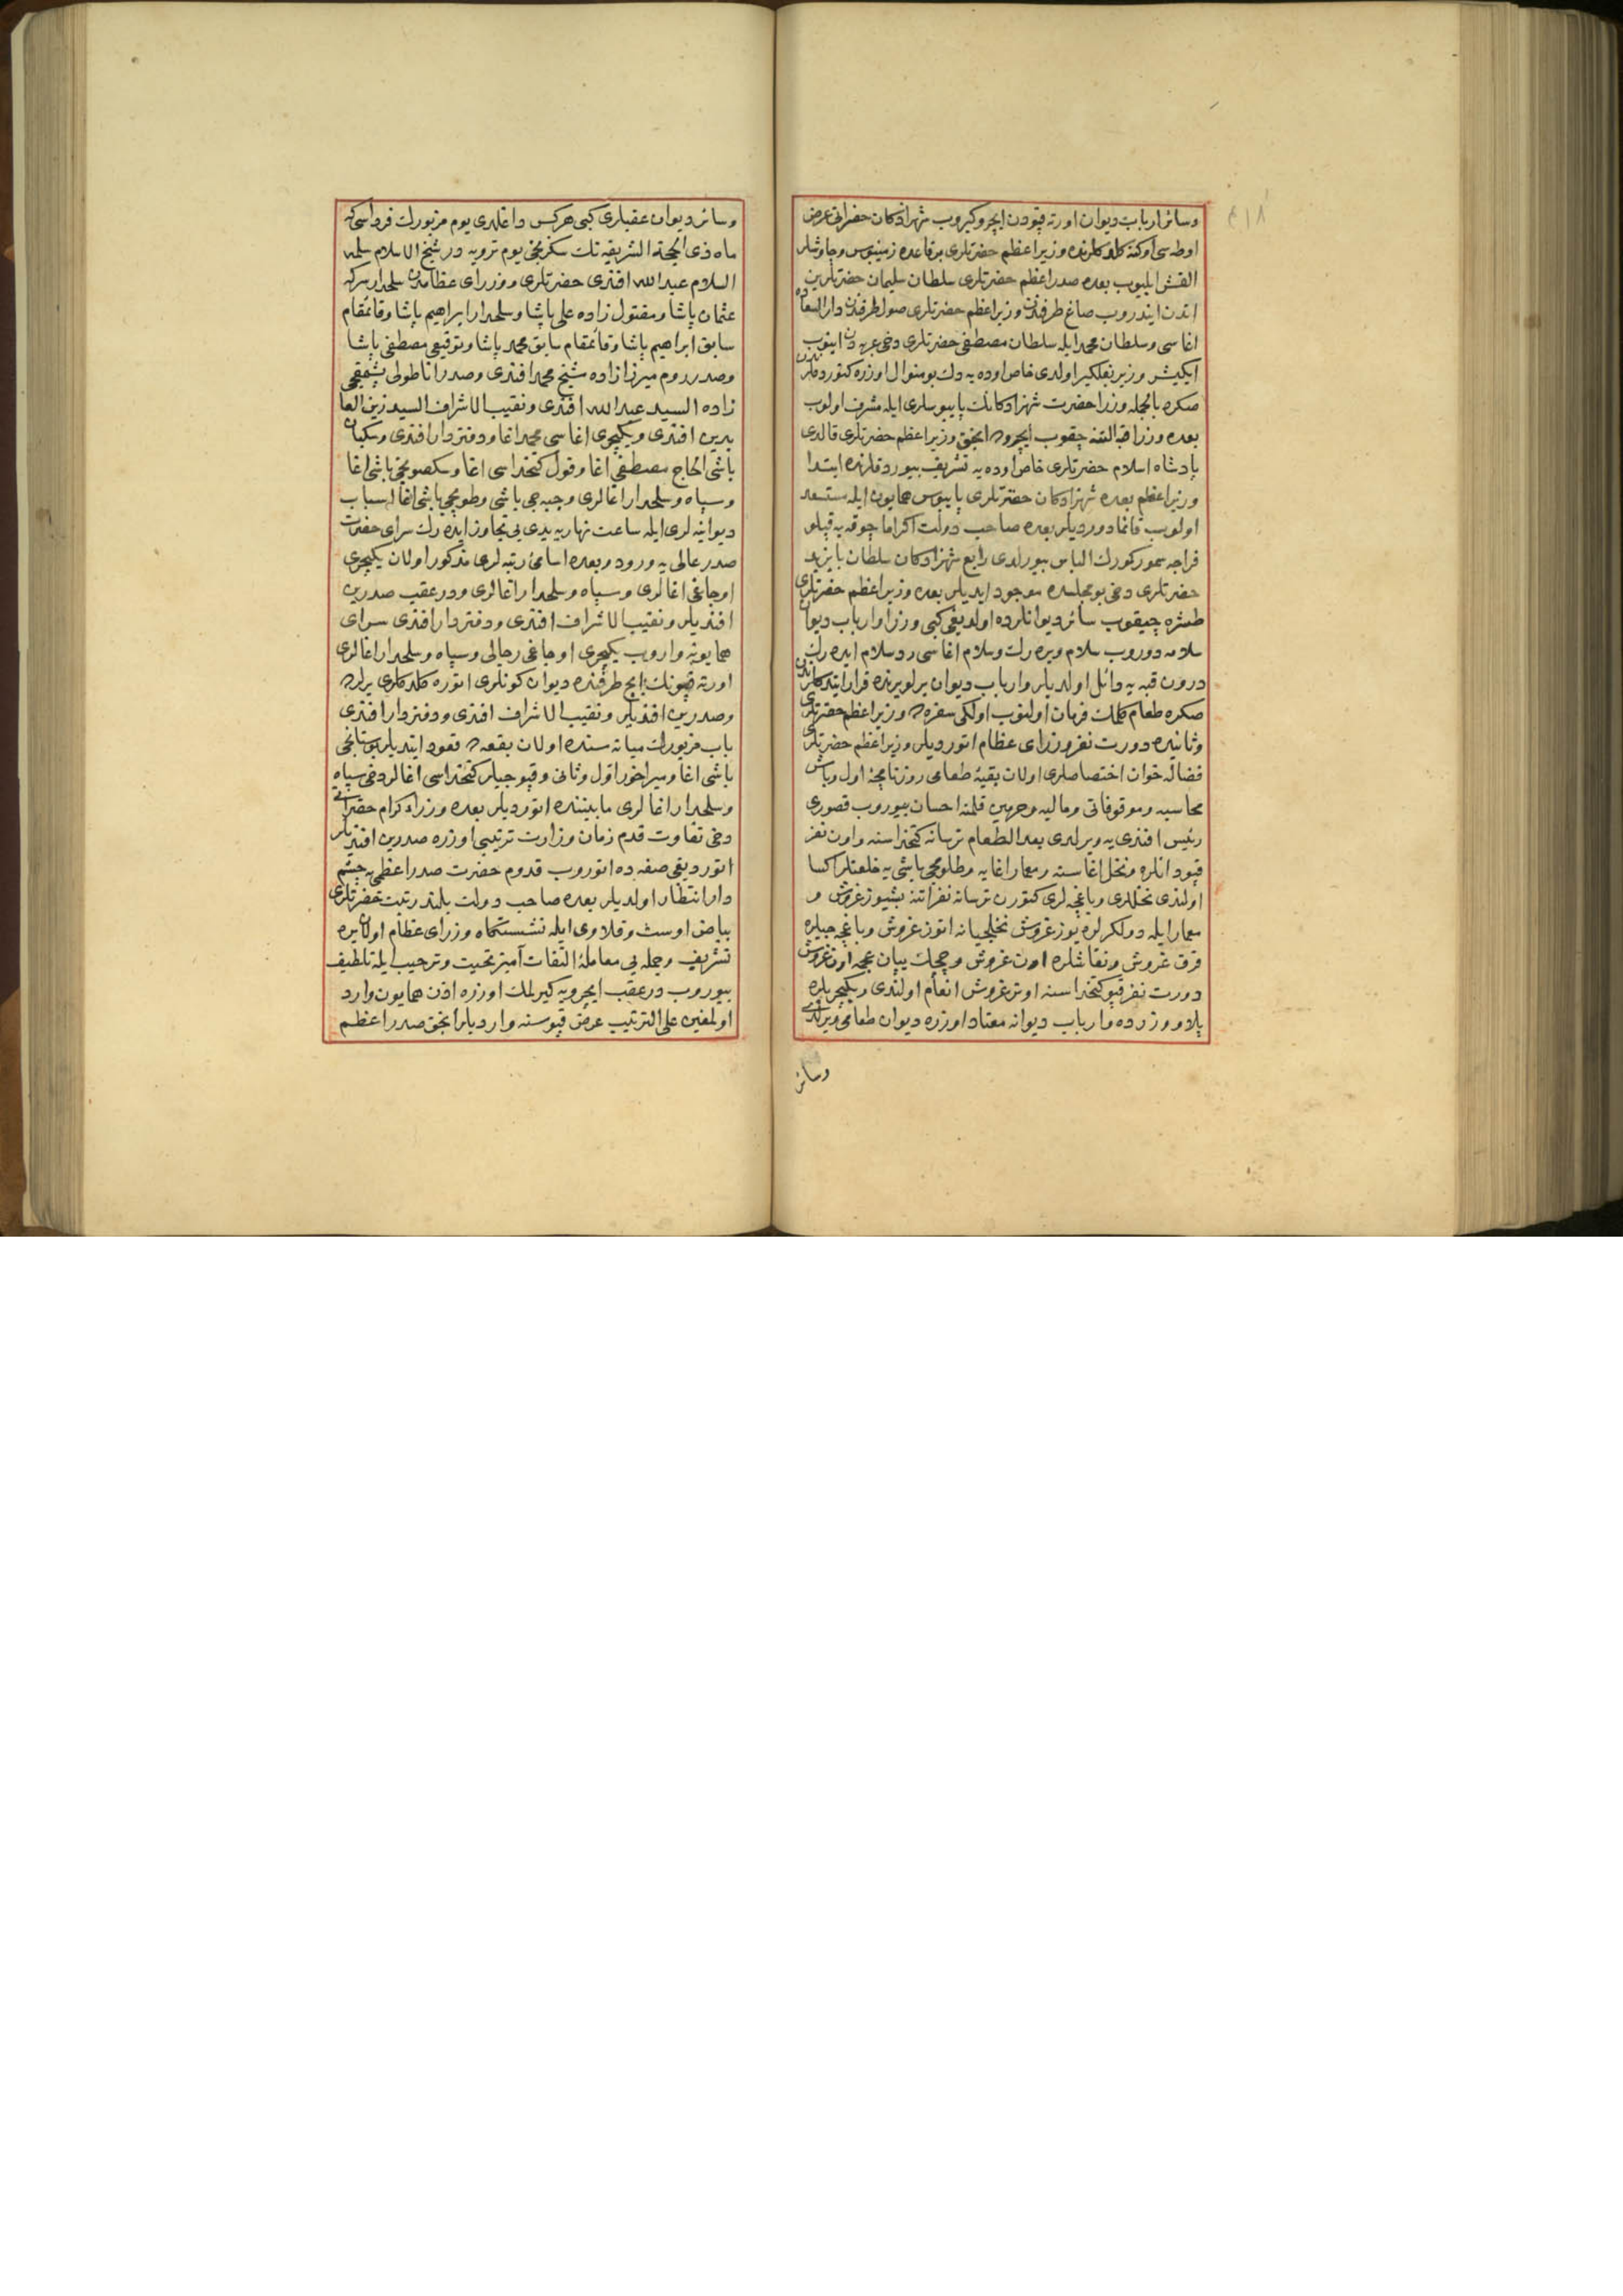 وسائر ارباب ديوان اورته قپودن ايچرو كيروب شهزادكان حضراتى عرض
اوطه سى اوكنه كلدكلرنده وزير اعظم حضرتلرى بر قاعده زمينبوس وچاوشلر
القش ايليوب بعده صدر اعظم حضرتلرى سلطان سليمان حضرتلرين
اتدن ايندروب صاغ طرفندن وزير اعظم حضرتلرى صول طرفندن دار السعاده
اغاسى وسلطان محمد ايله سلطان مصطفى حضرتلرى دخى عربه دن اينوب
ايكيشر وزير بغلكير اولدى خاص اوده يه دك بو منوال اوزره كتوردكلرندن
صكره بالجمله وزرا حضرت شهزادكانك پايبوسلرى ايله مشرف اولوب
بعده وزرا قبه التنه چقوب ايچروده انجق وزير اعظم حضرتلرى قالدى
پادشاه اسلام حضرتلرى خاص اوده يه تشريف بيوردقلرنده ابتدا
وزير اعظم بعده شهزادكان حضرتلرى پايبوس همايون ايله مستسعد
اولوب قائما دورديلر بعده صاحب دولت اكراما چوقه يه قپلو
فراجه سمور كورك الباس بيورلدى رابع شهزادكان سلطان بايزيد
حضرتلرى دخى بو مجلسده موجود ايديلر بعده وزير اعظم حضرتلرى
طشره چيقوب سائر ديوانلرده اولديغى كبى وزرا وارباب ديوان
سلامه دوروب سلام ويره رك وسلام اغاسى رد سلام ايده رك
درون قبه يه داخل اولديلر وارباب ديوان يرلو يرنده قرار ايتدكلرندن
صكره طعام كلمك فرمان اولنوب اولكى سفره ده وزير اعظم حضرتلرى
وثانيده دورت نفر وزراى عظام اتورديلر وزير اعظم حضرتلرى
فضاله خوان اختصاصلرى اولان بقيه طعامى روزنامچه اول وباش
محاسبه وموقوفاتى وماليه وحرمين قلمنه احسان بيوروب قصورى
رئيس افندى يه ويرلدى بعد الطعام ترسانه كتخداسنه واون نفر
قپودانلره ونخل اغاسنه ومعمار اغايه وطلومبجى باشى يه خلعتلر اكسا
اولندى نخللرى وباغچه لرى كتورن ترسانه نفراتنه بشيوز غروش و
معمار ايله دولكرلره يوز غروش نخلجيانه اتوز غروش وباغچه جيلره
قرق غروش ونقاشلره اون غروش وچچك يپان عجمه اون غروش
دورت نفر قپو كتخداسنه اوتز غروش انعام اولندى ويكيچريلره
پلاو وزرده وارباب ديوانه معتاد اوزره ديوان طعامى ويرلدى
وسائر
وسائر ديوان عقبلرى كبى هركس داغلدى يوم مزبورك فرداسى كه
ماه ذى الحجة الشريفه نك سكزنجى يوم ترويه در شيخ الاسلام سلمه
السلام عبد الله افندى حضرتلرى ووزراى عظامدن سلحدار سركه
عثمان پاشا ومقتول زاده على پاشا وسلحدار ابراهيم پاشا وقائمقام
سابق ابراهيم پاشا وقائمقام سابق محمد پاشا وتوقيعى مصطفى پاشا
وصدر روم ميرزا زاده شيخ محمد افندى وصدر اناطولى پشمقجى
زاده السيد عبد الله افندى ونقيب الاشراف السيد زين العا
بدين افندى ويكيچرى اغاسى محمد اغا ودفتردار افندى وسكبان
باشى الحاج مصطفى اغا وقول كتخداسى اغا وسكصونجى باشى اغا
وسپاه وسلحدار اغالرى وجبه جى باشى وطوپجى باشى اغا اسباب
ديوانيه لرى ايله ساعت نهاريه يدى بى تجاوز ايده رك سراى حضرت
صدر عالى يه ورود وبعده اسامئ رتبه لرى مذكور اولان يكيچرى
اوجاغى اغالرى وسپاه وسلحدار اغالرى ودر عقب صدرين
افنديلر ونقيب الاشراف افندى ودفتردار افندى سراى
همايونه واروب يكيچرى اوجاغى رجالى وسپاه وسلحدار اغالرى
اورته قپونك ايچ طرفنده ديوان كونلرى اتوره كلدكلرى يرلرده
وصدرين افنديلر ونقيب الاشراف افندى ودفتردار افندى
باب مزبورك ميانه سنده اولان بقعه ده قعود ايتديلر بوستانجى
باشى اغا وميراخور اول وثانى وقپوجيلر كتخداسى اغالر دخى سپاه
وسلحدار اغالرى مابيننده اتورديلر بعده وزراء كرام حضراتى
دخى تفاوت قدم زمان وزارت ترتيبى اوزره صدرين افنديلر
اتورديغى صفه ده اتوروب قدوم حضرت صدر اعظمى يه چشم
دار انتظار اولديلر بعده صاحب دولت بلند رتبت حضرتلرى
بياض اوست وقلاوى ايله نشستكاه وزراى عظام اولان يره
تشريف وجمله يى معامله التفات آميز تحيت وترحيب ايله تلطيف
بيوروب در عقب ايچرويه كيرلمك اوزره اذن همايون وارد
اولمغين على الترتيب عرض قپوسنه وارديلر انجق صدر اعظم